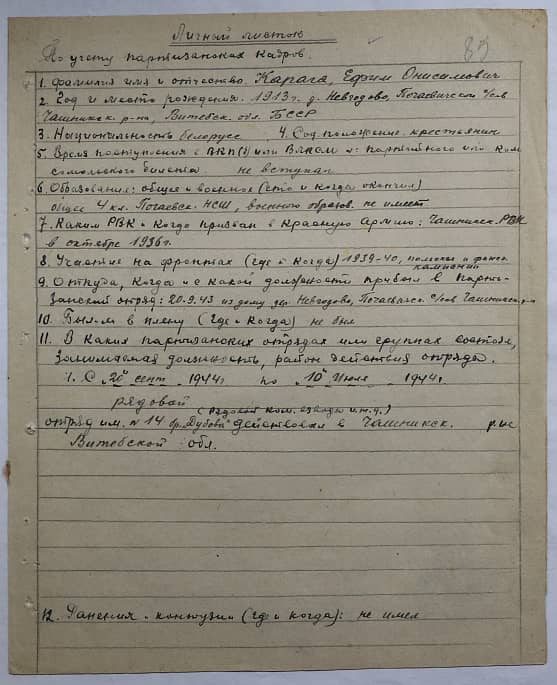 Личный листок
По учету партизанских кадров.
85
1. Фамилия имя и отчество. Карага, Ефим Онисимович
2. Год и место рождения. 1913г. д. Невгодово, Почаевичский с/сов
Чашникск. р-на, Витебск. обл. БССР
3. Национальность белорусс 4. Соц. положение. крестьянин
5. Время поступления в ВКП(б) или ВЛКСМ и: партийного или ком
сомольского билета. не вступал
6. Образование: общее и военное (что и когда окончил)
общее 4 кл. Почаевск. НСШ, военного образов. не имеет
7. Каким РВК и когда призван в Красную Армию: Чашникск. РВК
в октябре 1936г.
8. Участие на фронтах (где и когда) 1939-40, польская и финск.
кампании
9. Откуда, когда и с какой должности прибыл в парти-
занский отряд: 20.9.43 из дому дер. Невгодово, Почаевичск. с/сов Чашникск.
10. Был-ли в плену (где и когда) не был
11. В каких партизанских отрядах или группах состоял,
занимаемая должность, район действия отряда.
1. С "20" сент 1944г по "10" июля 1944г.
рядовой
(рядовой ком. взвода и т.д.)
отряд им. № 14 бр. "Дубова" действовал в Чашникск. р-не
Витебской обл.
12. Ранения и контузии (где и когда): не имел